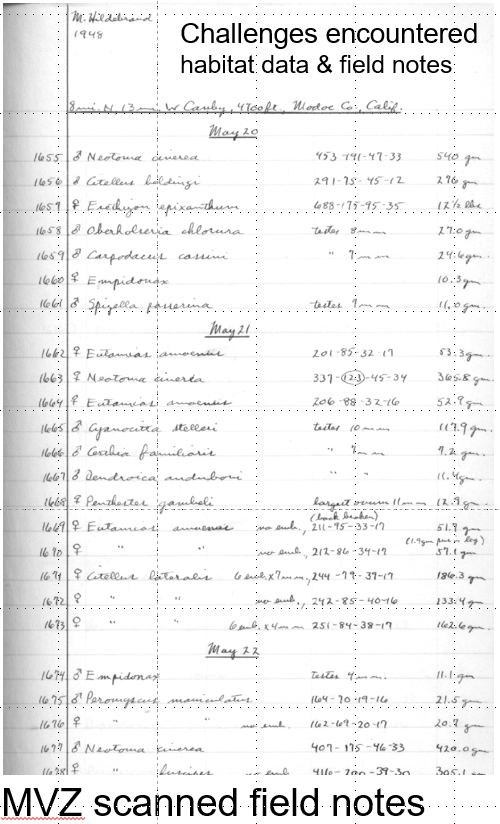 M. Hildebrand
1948
Challenges encountered
habitat data & field notes
8 mi. N, 13 mi. W Canby, 4700 ft., Modoc Co., Calif.
May 20
1655 ♂ Neotoma cinerea 453-191-47-33 540 gm
1656 ♂ Citellus beldingi 291-75-45-12 296 gm
1657 ♀ Erethizon epixanthum 688-175-95-35 12½ lbs
1658 ♂ Oberholseria chlorura testes 8 mm 27.0 gm
1659 ♂ Carpodacus cassini " 7 mm 24.6 gm
1660 ♀ Empidonax 10.3 gm
1661 ♂ Spizella passerina testes 7 mm 11.0 gm
May 21
1662 ♀ Eutamias amoenus 201-85-32-17 53.3 gm
1663 ♀ Neotoma cinerea 337-(123)-45-34 365.8 gm
1664 ♀ Eutamias amoenus 206-88-32-16 52.9 gm
1665 ♂ Cyanocitta stelleri testes 10 mm 117.9 gm
1666 ♂ Certhia familiaris " mm 7.2 gm
1667 ♂ Dendroica auduboni " " 11.4 gm
1668 ♀ Penthestes gambeli largest ovum 11 mm 12.9 gm
(back broken)
1669 ♀ Eutamias amoenus no emb., 211-95-33-17 51.9 gm
(1.9 gm in leg)
1670 ♀ " " no emb., 212-86-34-17 57.1 gm
1671 ♀ Citellus lateralis 6 emb. x 7 mm, 244-79-39-17 186.3 gm
1672 ♀ " " no emb., 242-85-40-16 133.4 gm
1673 ♀ 6 emb. x 4 mm 251-84-38-17 162.6 gm
May 22
1674 ♂ Empidonax testes 4 mm 11.1 gm
1675 ♂ Peromyscus maniculatus 164-70-19-16 21.5 gm
1676 ♀ " " no emb. 162-69-20-17 20.7 gm
1677 ♂ Neotoma cinerea 407-175-46-33 420.0 gm
1678 ♀ " fuscipes no emb 416-200-39-30 305.1 gm
MVZ scanned field notes